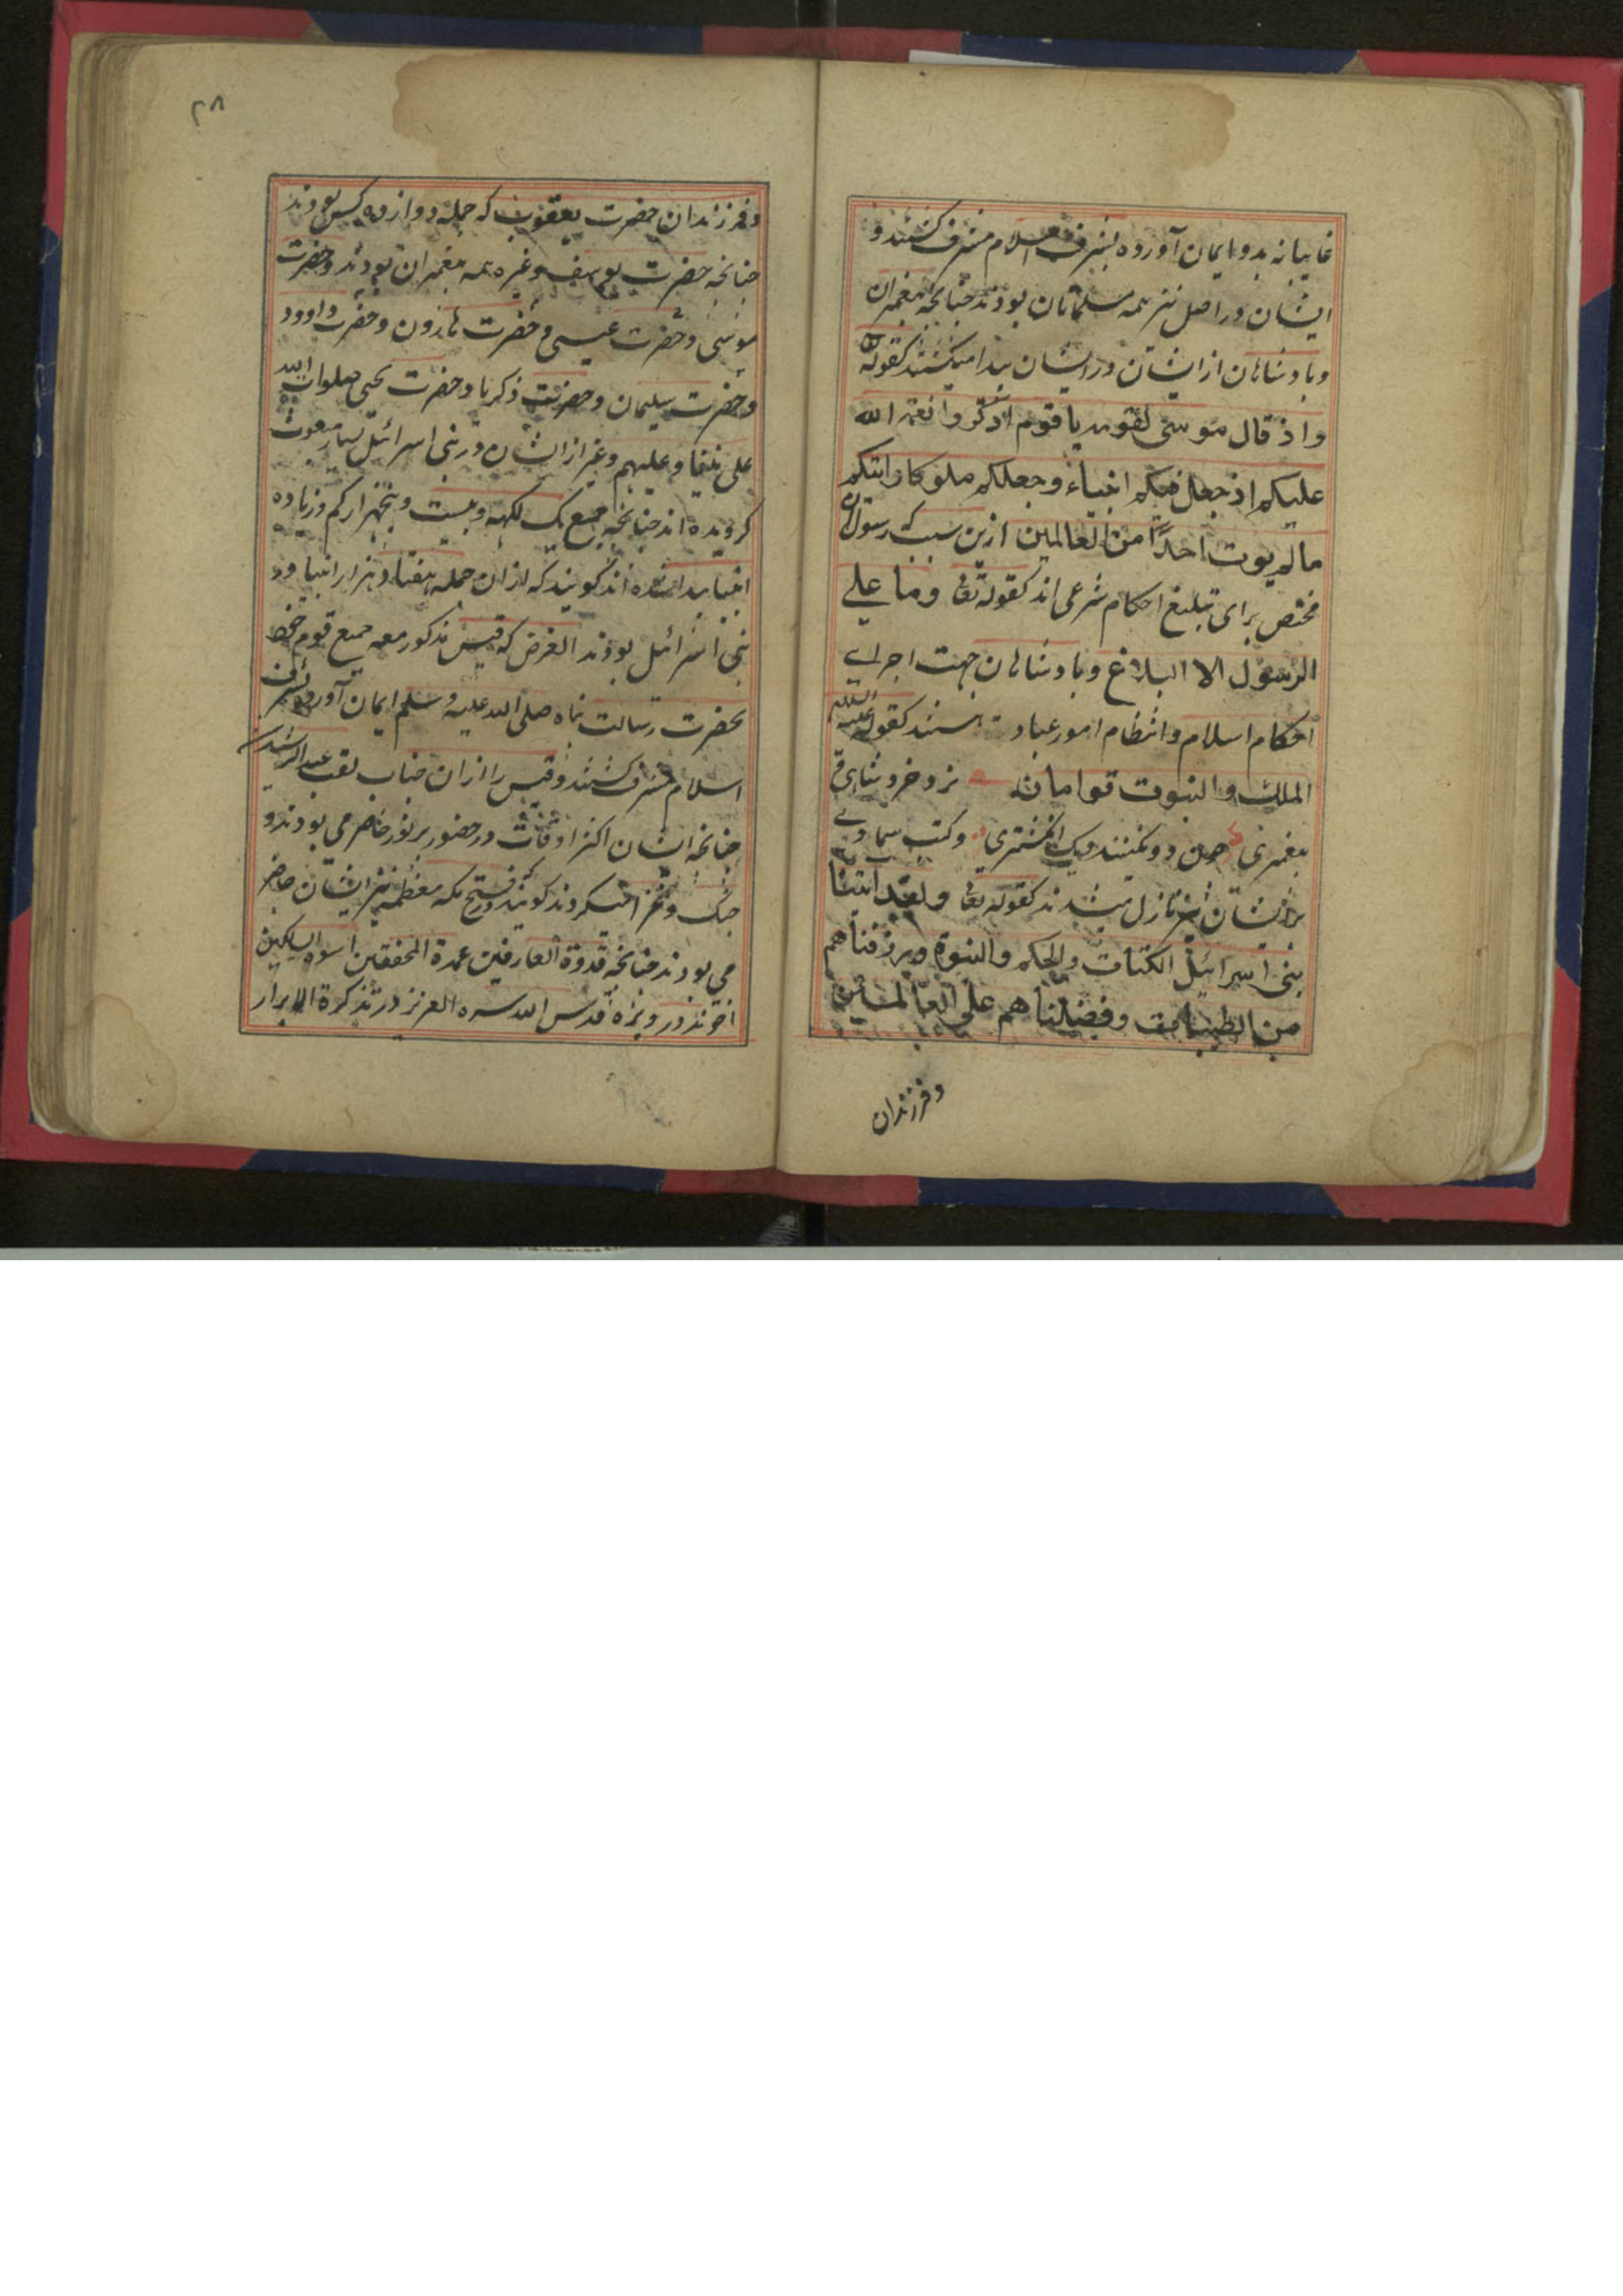 غایبانه بدو ایمان آورده بشرف اسلام مشرف گشتند و
ایشان در اصل نیز همه مسلمانان بودند چنانچه پیغمبران
و بادشاهان از ایشان در ایشان پیدا میگشتند کقوله تعالی
واذ قال موسی لقومه یا قوم اذکروا نعمة الله
علیکم اذ جعل فیکم انبیاء وجعلکم ملوکا واتیکم
مالم یوت احدًا من العالمین ازین سبب که رسولان
مختص برای تبلیغ احکام شرعی اند کقوله تعالی وما علی
الرسول الا البلاغ و بادشاهان جهت اجرای
احکام اسلام و انتظام امور عباد هستند کقوله علیه السلام
الملک والنبوت توامان نزد خرد شاهی و
پیغمبری چون دو نگینند و یک انگشتری و کتب سماوی
بر ایشان نیز نازل میشدند کقوله تعالی ولقد اتینا
بنی اسرائیل الکتاب والحکم والنبوة ورزقناهم
من الطیبات وفضلناهم علی العالمین
و فرزندان
۲۸
و فرزندان حضرت یعقوب که جمله دوازده کس بودند
چنانچه حضرت یوسف وغیره همه پیغمبران بودند و حضرت
موسی و حضرت عیسی و حضرت هارون و حضرت داوود
و حضرت سلیمان و حضرت ذکریا و حضرت یحیی صلوات الله
علی نبینا و علیهم و غیر از ایشان در بنی اسرائیل بسیار مبعوث
گردیده اند چنانچه جمیع یک لکهه و بیست و پنجهزار کم و زیاده
انبیا پیدا شده اند گویند که از ان جمله هفتاد هزار انبیا در
بنی اسرائیل بودند الغرض که قیس مذکور معه جمیع قوم خود
بحضرت رسالت پناه صلی الله علیه و سلم ایمان آورده بشرف
اسلام مشرف گشتند و قیس را از ان جناب لقب عبد الرشید شد
چنانچه ایشان اکثر اوقات در حضور پر نور حاضر می بودند و
جنگ و غزا میکردند گویند در فتح مکه معظمه نیز ایشان حاضر
می بودند چنانچه قدوة العارفین عمدة المحققین اسوة السالکین
اخوند درویزه قدس الله سره العزیز در تذکرة الابرار